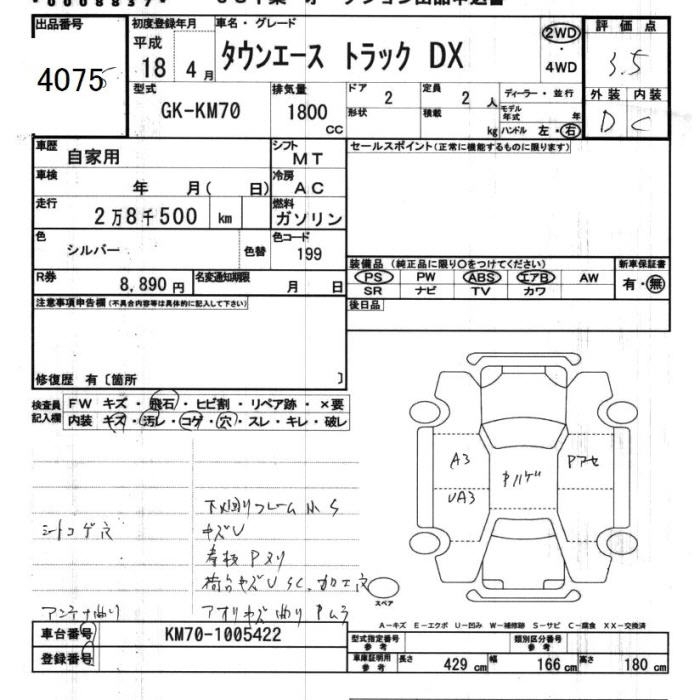 出品番号
4075
初度登録年月
平成
18 4 月
車名・グレード
タウンエース トラック DX
2WD
・
4WD
評価点
3.5
外装 内装
D C
型式
GK-KM70
排気量
1800
CC
ドア
2
定員
2 人
ディーラー・並行
形状
積載
kg
モデル年式
年
ハンドル 左・右
車歴
自家用
シフト
MT
セールスポイント(正常に機能するものに限ります)
車検
年 月( 日)
冷房
AC
走行
2万8千500 km
燃料
ガソリン
色
シルバー
色替
色コード
199
装備品 (純正品に限り○をつけてください)
新車保証書
PS PW ABS エアB AW
SR ナビ TV カワ
有・無
R券
8,890 円
名変通知期限
月 日
後日品
注意事項申告欄(不具合内容等は具体的に記入して下さい)
修復歴 有〔箇所 〕
検査員記入欄
FW キズ・飛石・ヒビ割・リペア跡・×要
内装 キズ・汚レ・コゲ・穴・スレ・キレ・破レ
A3
UA3
Pハゲ
Pアセ
下廻りフレーム小S
シートコゲ穴
キズU
看板Pヌリ
荷台キズUSC.加工穴
アンテナ曲り
アオリキズ曲りPムラ
スペア
A-キズ E-エクボ U-凹み W-補修跡 S-サビ C-腐食 XX-交換済
車台番号
KM70-1005422
登録番号
型式指定番号
参考
類別区分番号
参考
車庫証明用
参考
長さ 429 cm 幅 166 cm 高さ 180 cm